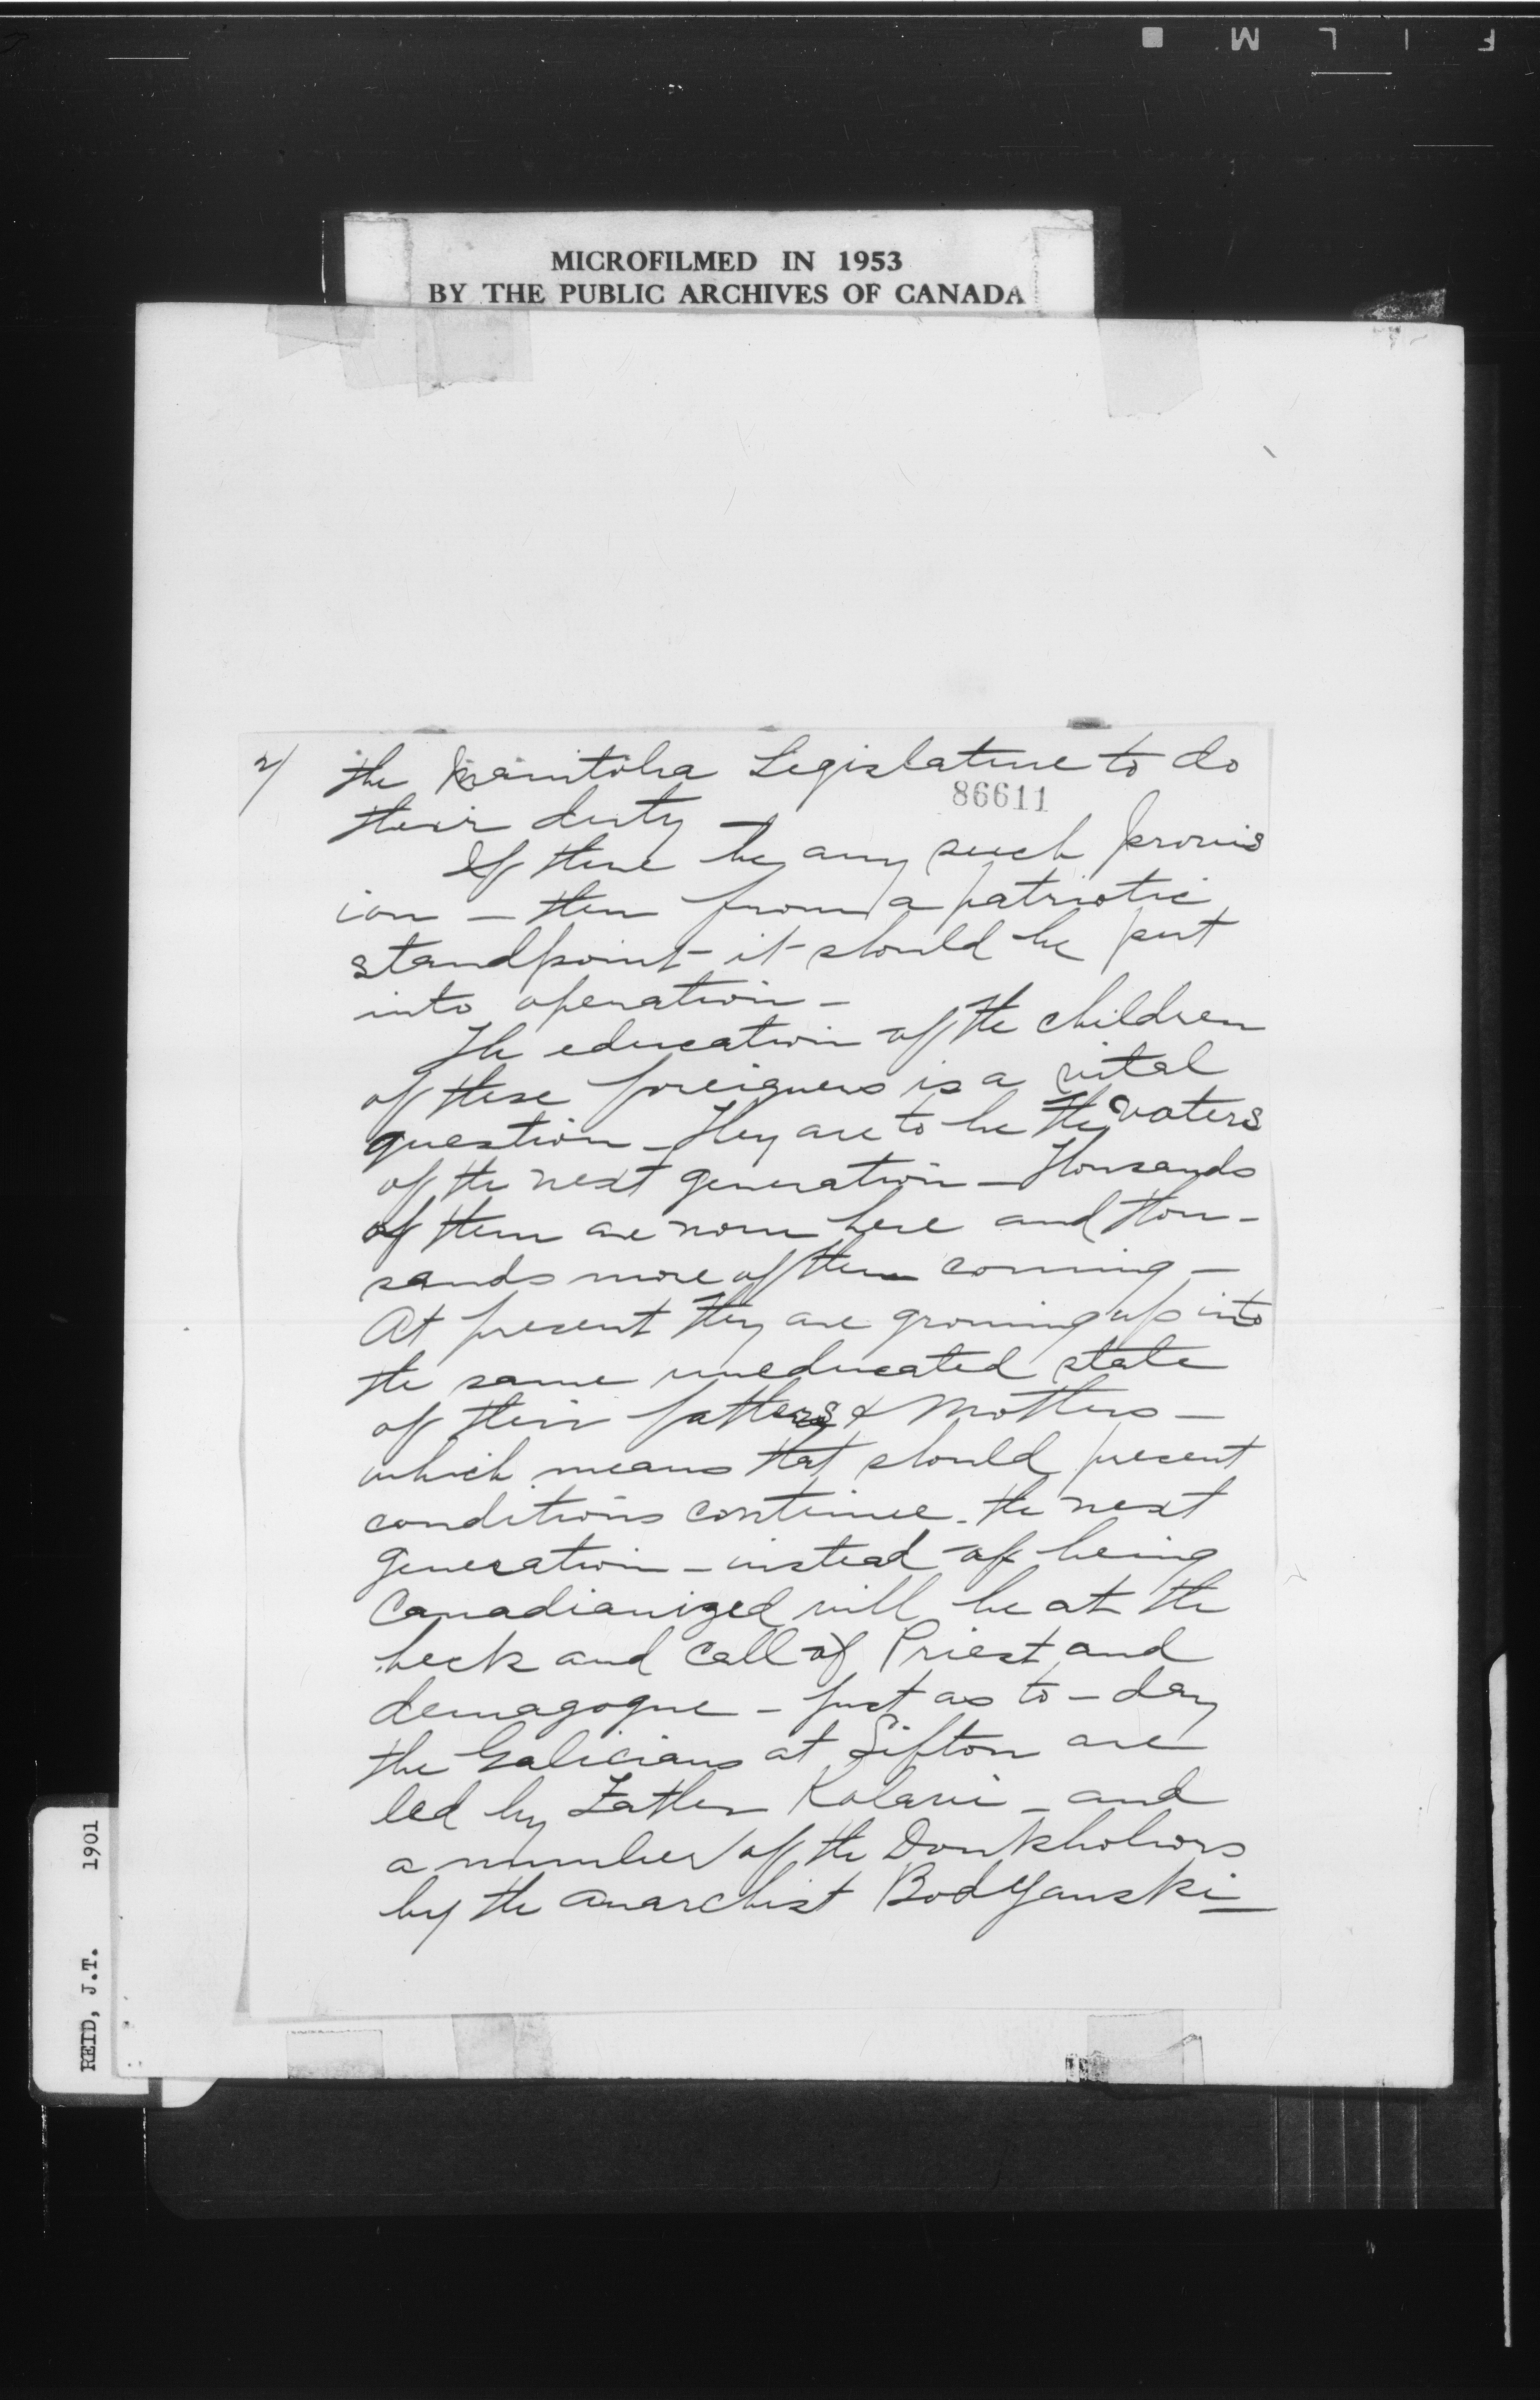 F I L M
MICROFILMED IN 1953
BY THE PUBLIC ARCHIVES OF CANADA
2/
the Manitoba Legislature to do
86611
their duty
If there be any such provis
ion – then from a patriotic
standpoint – it should be put
into operation –
The education of the children
of these foreigners is a vital
question – They are to be the voters
of the next generation – Thousands
of them are now here and thou-
sands more of them coming –
At present they are growing up into
the same uneducated state
of their fathers & mothers –
which means that should present
conditions continue – the next
generation – instead of being
Canadianized will be at the
beck and call of Priest and
demagogue – just as to-day
the Galicians at Sifton are
led by Father – and
a number of the Doukhobors
by the anarchist Bodyanski –
REID, J.T. 1901